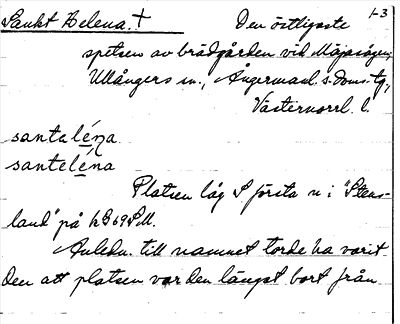 Sankt Helena. † Den östligaste 1-3
spetsen av brädgården vid Mäjasågen,
Ullångers sn., Ångermanl. s. doms.-tg,
Västernorrl. l.
santaléna
santeléna
Platsen låg S första n i "Stens-
land" på kB 69 SM.
Anledn. till namnet torde ha varit
den att platsen var den längst bort från